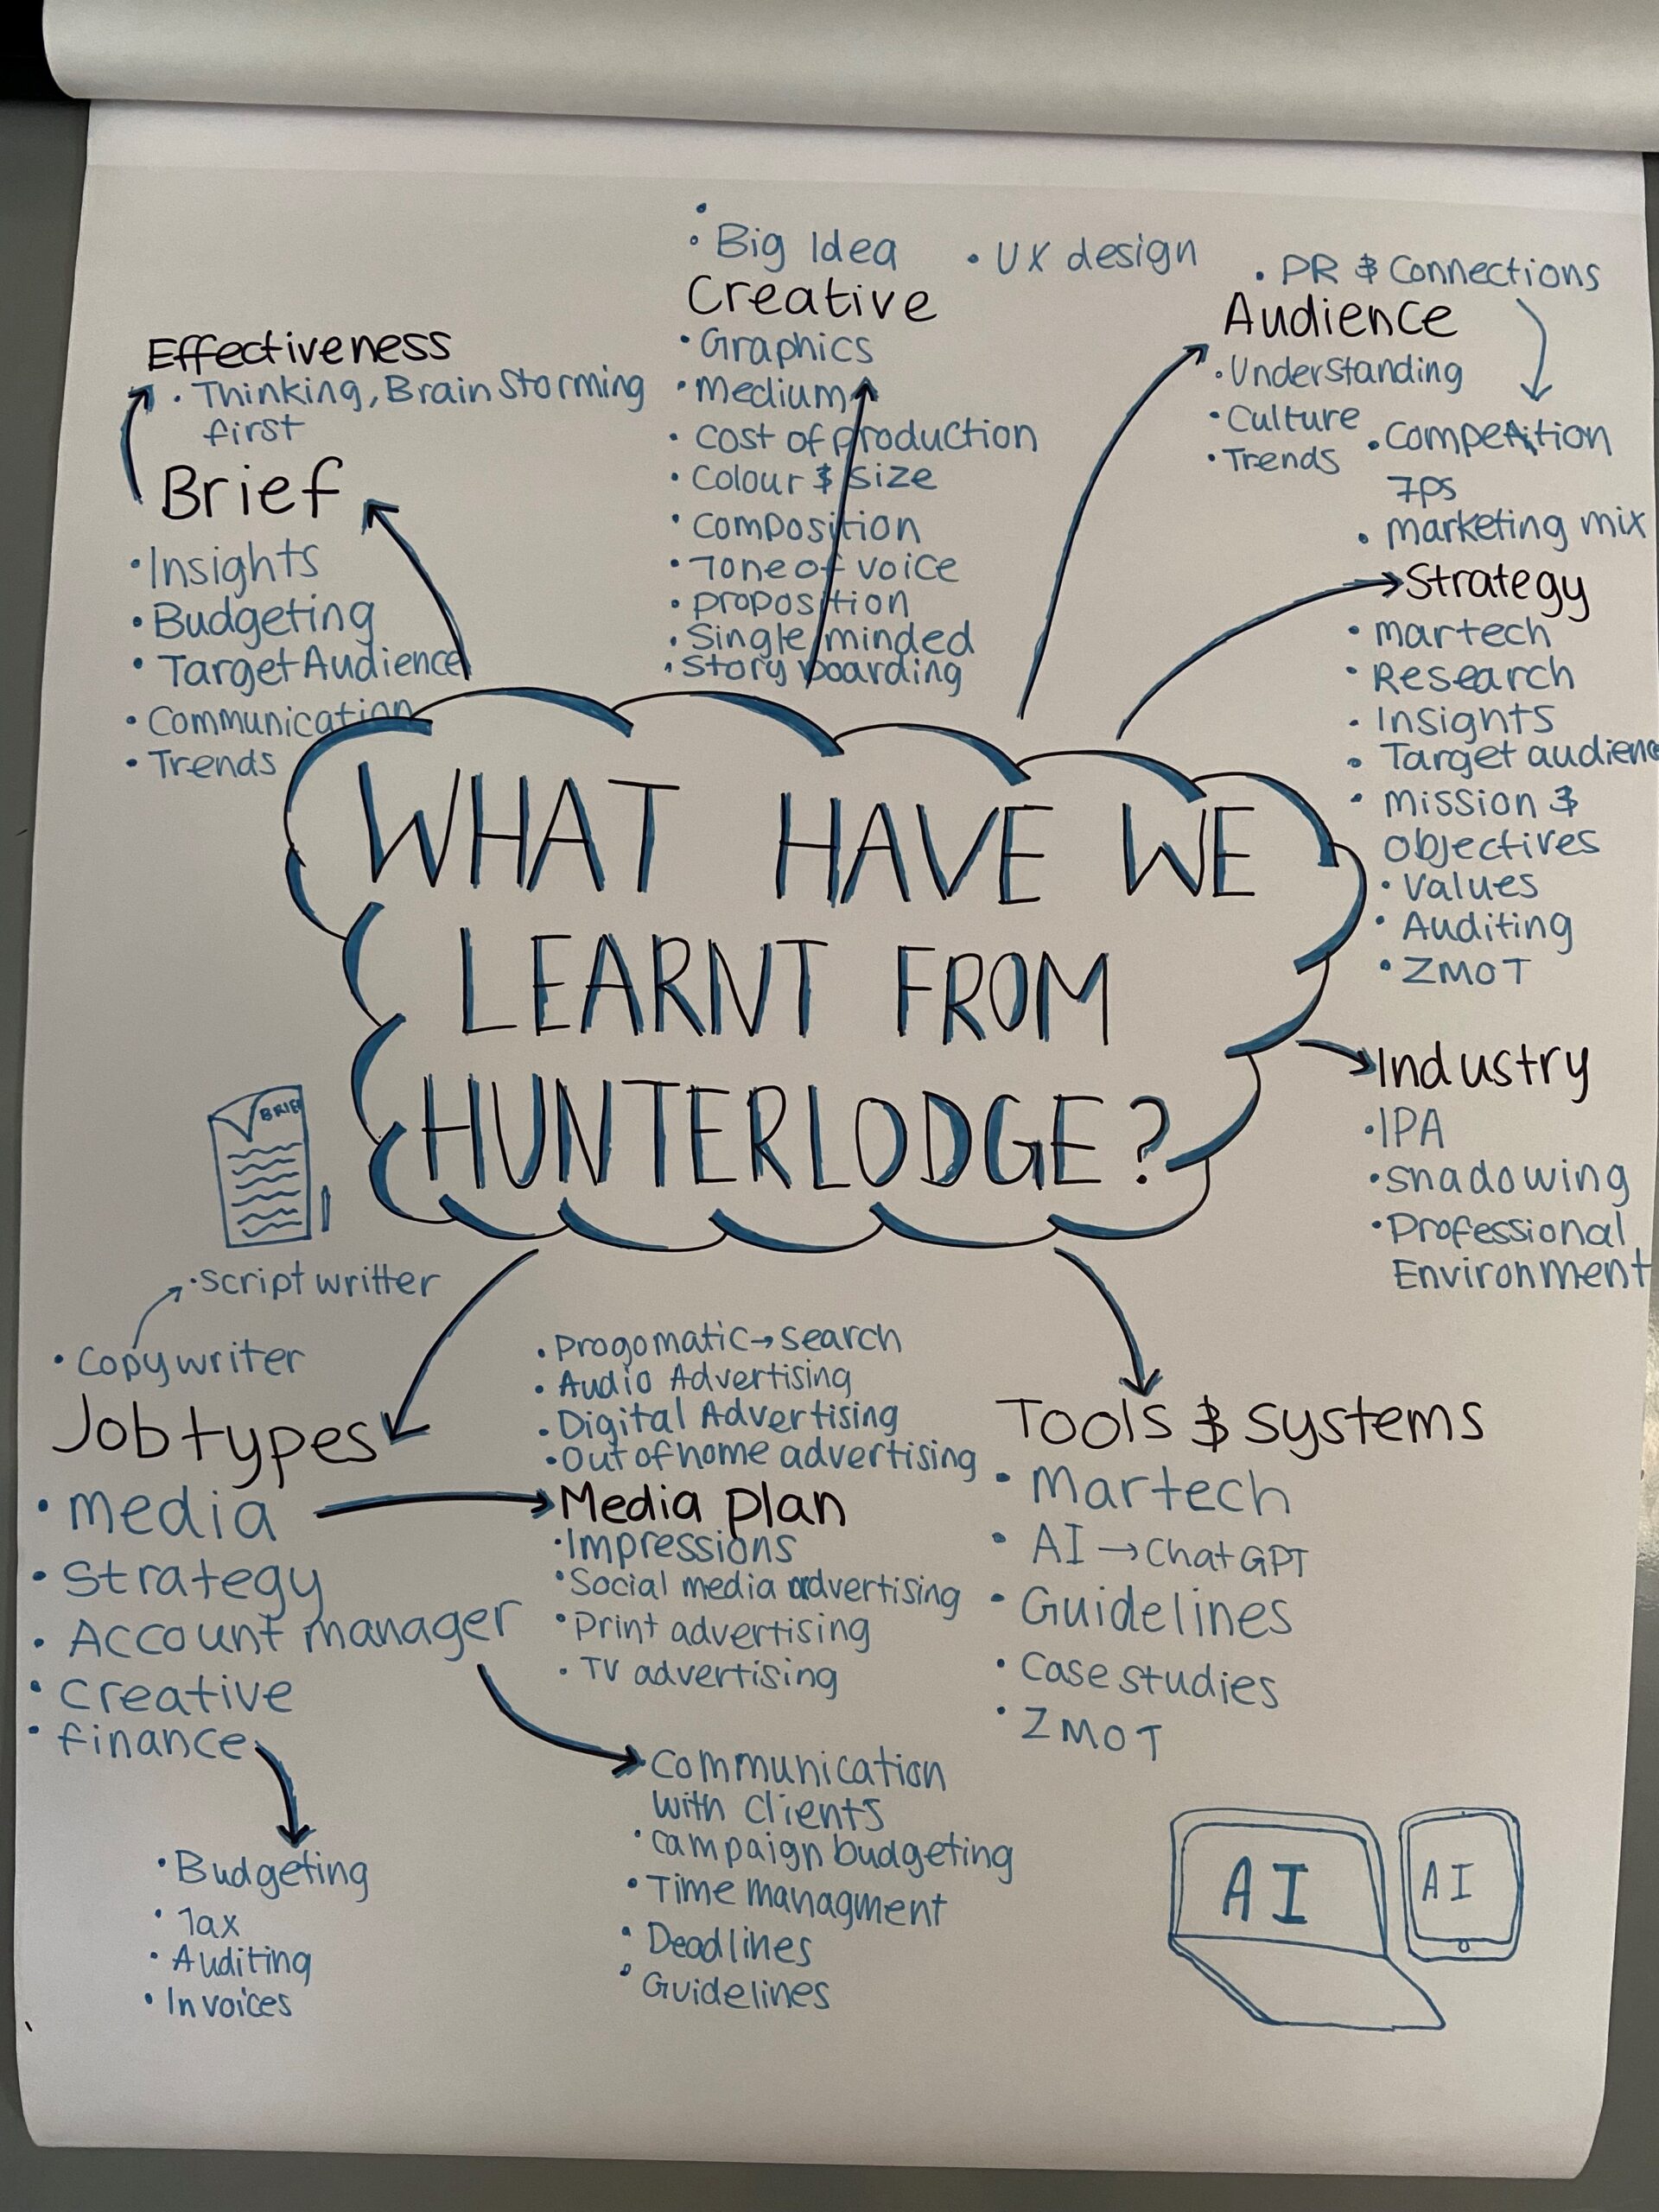 • Big Idea
• UX design
• PR & Connections
Creative
Audience
Effectiveness
• Thinking, Brain Storming
first
Brief
• Insights
• Budgeting
• Target Audience
• Communication
• Trends
• Graphics
• Medium
• Cost of production
• Colour & size
• Composition
• Tone of voice
• proposition
• Single minded
• Story boarding
• Understanding
• Culture
• Trends
• Competition
7ps
• marketing mix
Strategy
• martech
• Research
• Insights
• Target audienc
• mission &
objectives
• values
• Auditing
• ZMOT
WHAT HAVE WE
LEARNT FROM
HUNTERLODGE?
Industry
• IPA
• shadowing
• Professional
Environment
BRIEF
• Script writter
• Copywriter
Job types
• media
• Strategy
• Account manager
• creative
• finance
• Budgeting
• Tax
• Auditing
• Invoices
• Progomatic → search
• Audio Advertising
• Digital Advertising
• Out of home advertising
Media plan
• Impressions
• Social media advertising
• Print advertising
• TV advertising
Communication
with clients
• campaign budgeting
• Time managment
• Deadlines
• Guidelines
Tools & systems
• Martech
• AI → Chat GPT
• Guidelines
• Case studies
• ZMOT
AI
AI